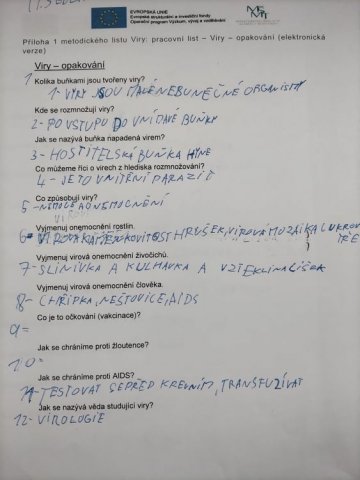 EVROPSKÁ UNIE
Evropské strukturální a investiční fondy
Operační program Výzkum, vývoj a vzdělávání
Příloha 1 metodického listu Viry: pracovní list – Viry – opakování (elektronická
verze)
Viry – opakování
1 Kolika buňkami jsou tvořeny viry?
1- VIRY JSOU MALÉ NEBUNEČNÉ ORGANISMY
Kde se rozmnožují viry?
2- PO VSTUPU DO VNÍMAVÉ BUŇKY
Jak se nazývá buňka napadená virem?
3- HOSTITELSKÁ BUŇKA HYNE
Co můžeme říci o virech z hlediska rozmnožování?
4- JE TO VNITŘNÍ PARAZIT
Co způsobují viry?
5- ONEMOCNĚNÍ
Vyjmenuj onemocnění rostlin.
6- VIROVÁ KAMÉNKOVITOST HRUŠEK, VIROVÁ MOZAIKA CUKROVÉ
ŘE
Vyjmenuj virová onemocnění živočichů.
7- SLINIVKA A KULHAVKA A VZTEKLINA LIŠEK
Vyjmenuj virová onemocnění člověka.
8- CHŘIPKA, NEŠTOVICE, AIDS
Co je to očkování (vakcinace)?
9=
Jak se chráníme proti žloutence?
10=
Jak se chráníme proti AIDS?
11- TESTOVAT SE PŘED KREVNÍM, TRANSFUZÍVAT
Jak se nazývá věda studující viry?
12- VIROLOGIE